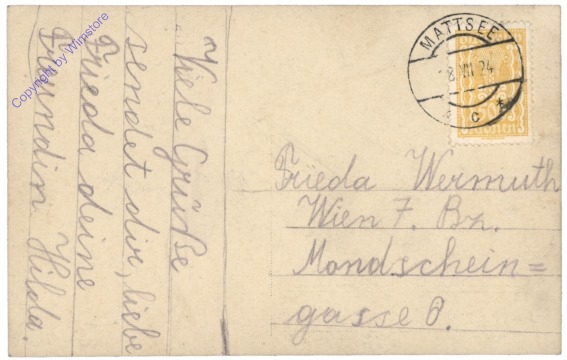 Viele Grüße
sendet dir, liebe
Frieda deine
Freundin Hilda.
MATTSEE
8.VII.24
* c *
Frieda Wermuth
Wien 7. Bz.
Mondschein=
gasse 6.
Copyright by Wimstore